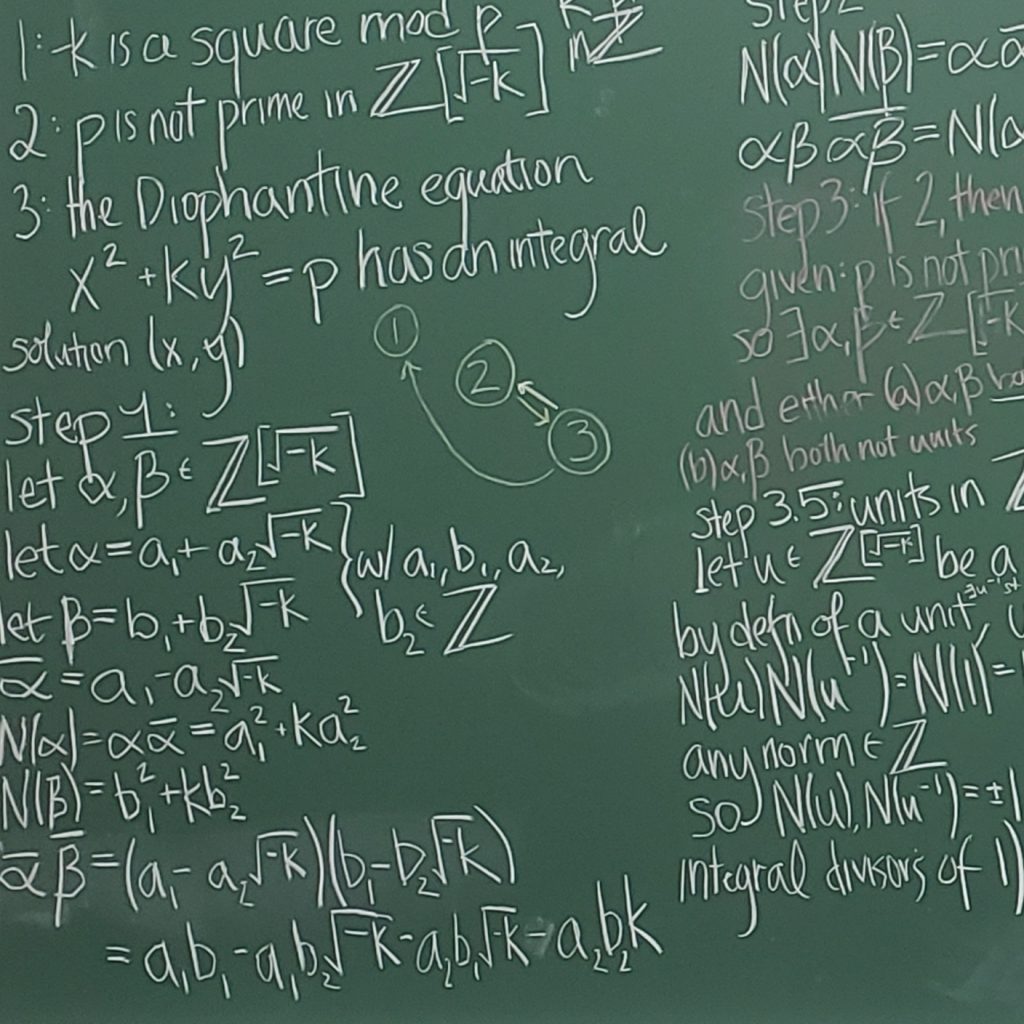 1: -k is a square mod p
2: p is not prime in ℤ[√-k] in ℤ
3: the Diophantine equation
x² + ky² = p has an integral
solution (x, y)
① ② ③
step 1:
let α, β ∈ ℤ[√-k]
let α = a₁ + a₂√-k } w/ a₁, b₁, a₂,
let β = b₁ + b₂√-k b₂ ∈ ℤ
ᾱ = a₁ - a₂√-k
N(α) = αᾱ = a₁² + ka₂²
N(β) = b₁² + kb₂²
ᾱ β̄ = (a₁ - a₂√-k)(b₁ - b₂√-k)
= a₁b₁ - a₁b₂√-k - a₂b₁√-k - a₂b₂k
step 2
N(α)N(β) = αᾱ
αβ α̅β̅ = N(α
step 3: if 2, then
given: p is not pri
so ∃α, β ∈ ℤ[√-k
and either (a) α, β bo
(b) α, β both not units
step 3.5: units in ℤ
let u ∈ ℤ[√-k] be a
by defn of a unit, ∃u⁻¹ st
N(u)N(u⁻¹) = N(1) =
any norm ∈ ℤ
so N(u), N(u⁻¹) = ±1
integral divisors of 1)